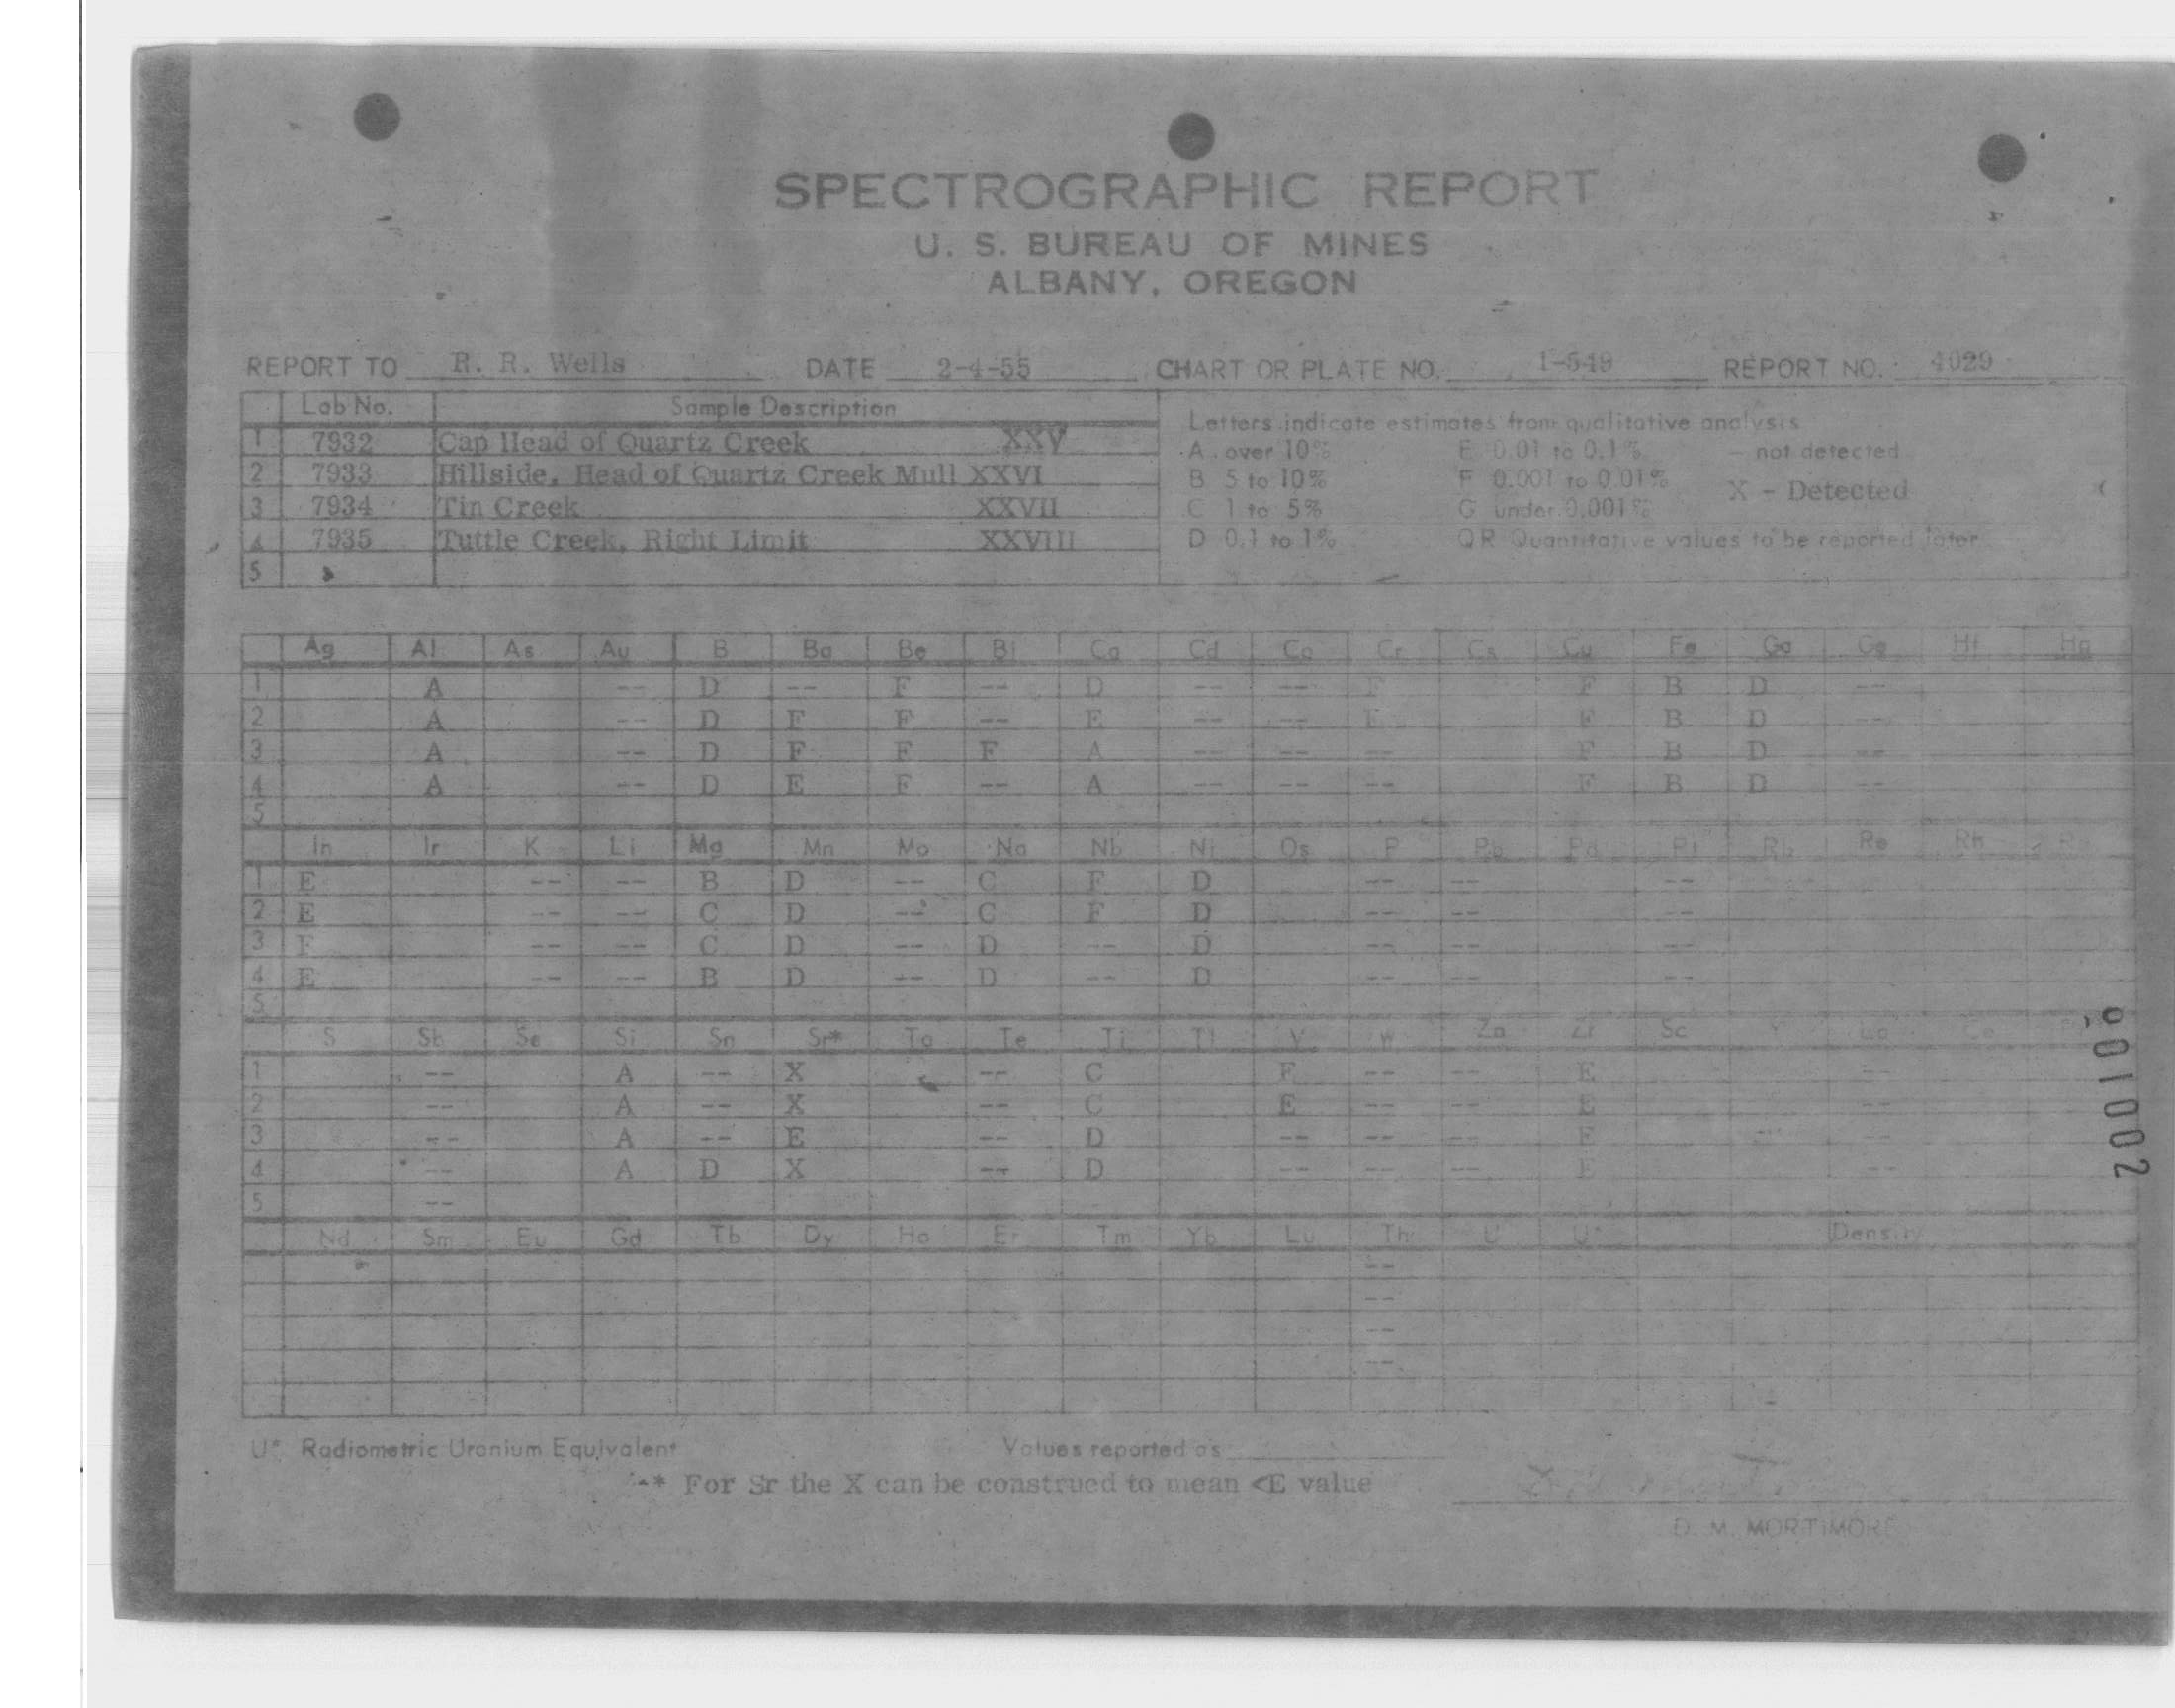 SPECTROGRAPHIC REPORT
U. S. BUREAU OF MINES
ALBANY, OREGON
REPORT TO R. R. Wells DATE 2-4-55 CHART OR PLATE NO. 1-549 REPORT NO. 4029
Lab No. Sample Description
1 7932 Cap Head of Quartz Creek XXV
2 7933 Hillside, Head of Quartz Creek Mull XXVI
3 7934 Tin Creek XXVII
4 7935 Tuttle Creek, Right Limit XXVIII
5
Letters indicate estimates from qualitative analysis
A over 10% E 0.01 to 0.1% - not detected
B 5 to 10% F 0.001 to 0.01% X - Detected
C 1 to 5% G under 0.001%
D 0.1 to 1% QR Quantitative values to be reported later
Ag Al As Au B Ba Be Bi Ca Cd Co Cr Cs Cu Fe Ga Ge Hf Hg
1 A -- D -- F -- D -- -- F F B D --
2 A -- D F F -- E -- -- F F B D --
3 A -- D F F F A -- -- -- F B D --
4 A -- D E F -- A -- -- -- F B D --
5
In Ir K Li Mg Mn Mo Na Nb Ni Os P Pb Pd Pt Rb Re Rh
1 E -- -- B D -- C F D -- -- --
2 E -- -- C D -- C F D -- -- --
3 F -- -- C D -- D -- D -- -- --
4 E -- -- B D -- D -- D -- -- --
5
S Sb Se Si Sn Sr* Ta Te Ti Tl V W Zn Zr Sc Y La Ce
1 -- A -- X -- C F -- -- E --
2 -- A -- X -- C E -- -- E --
3 -- A -- E -- D -- -- -- F --
4 -- A D X -- D -- -- -- E --
5 --
Nd Sm Eu Gd Tb Dy Ho Er Tm Yb Lu Th U U* Density
--
--
--
--
U* Radiometric Uranium Equivalent Values reported as
* For Sr the X can be construed to mean <E value
D. M. MORTIMORE
001002